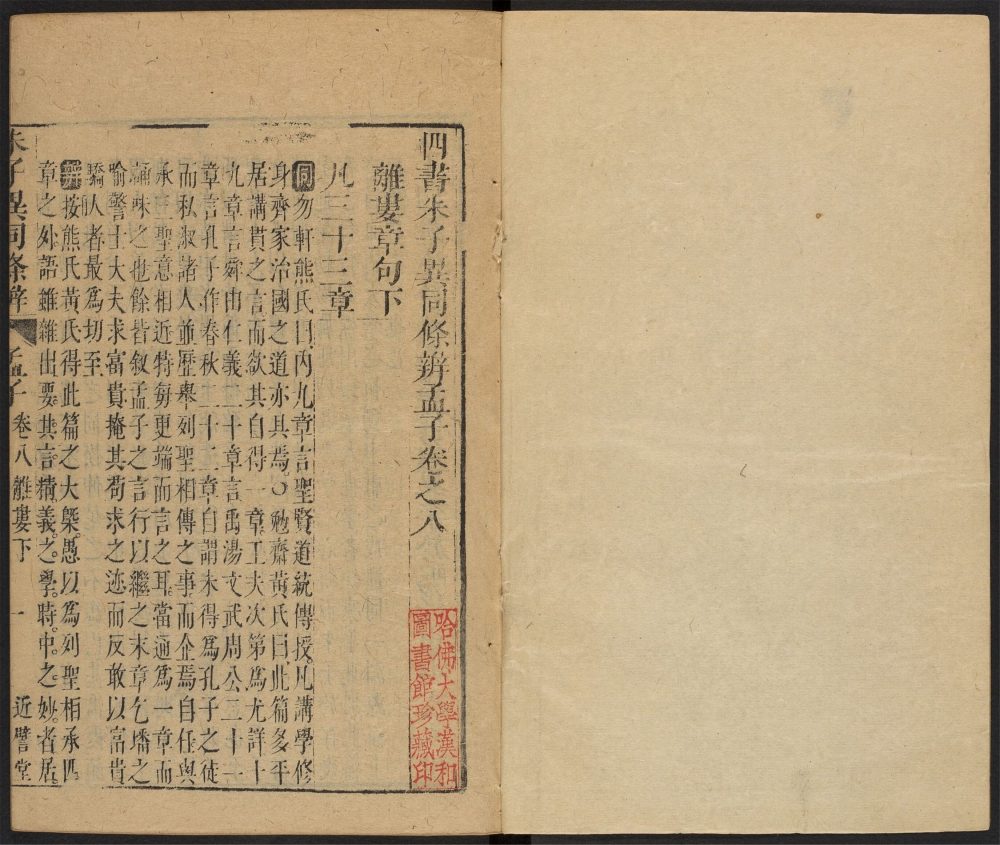 四書朱子異同條辨孟子卷之八
哈佛大學漢和
圖書館珍藏印
離婁章句下
凡三十三章
同勿軒熊氏曰內九章言聖賢道統傳授凡講學修
身齊家治國之道亦具焉○勉齋黃氏曰此篇多平
居講貫之言而欲其自得一章工夫次第爲尤詳十
九章言舜由仁義二十章言禹湯文武周公二十一
章言孔子作春秋二十二章自謂未得爲孔子之徒
而私淑諸人並歷舉列聖相傳之事而企焉自任與
承三聖意相近特每更端而言之耳當通爲一章而
誦味之也餘皆敘孟子之言行以繼之末章乞墦之
喻警士大夫求富貴掩其苟求之迹而反敢以富貴
驕人者最爲切至
辨按熊氏黃氏得此篇之大槩愚以爲列聖相承匹
章之外語雖雜出要其言精義之學時中之妙者居
朱子異同條辨 孟子 卷八離婁下 一 近譬堂